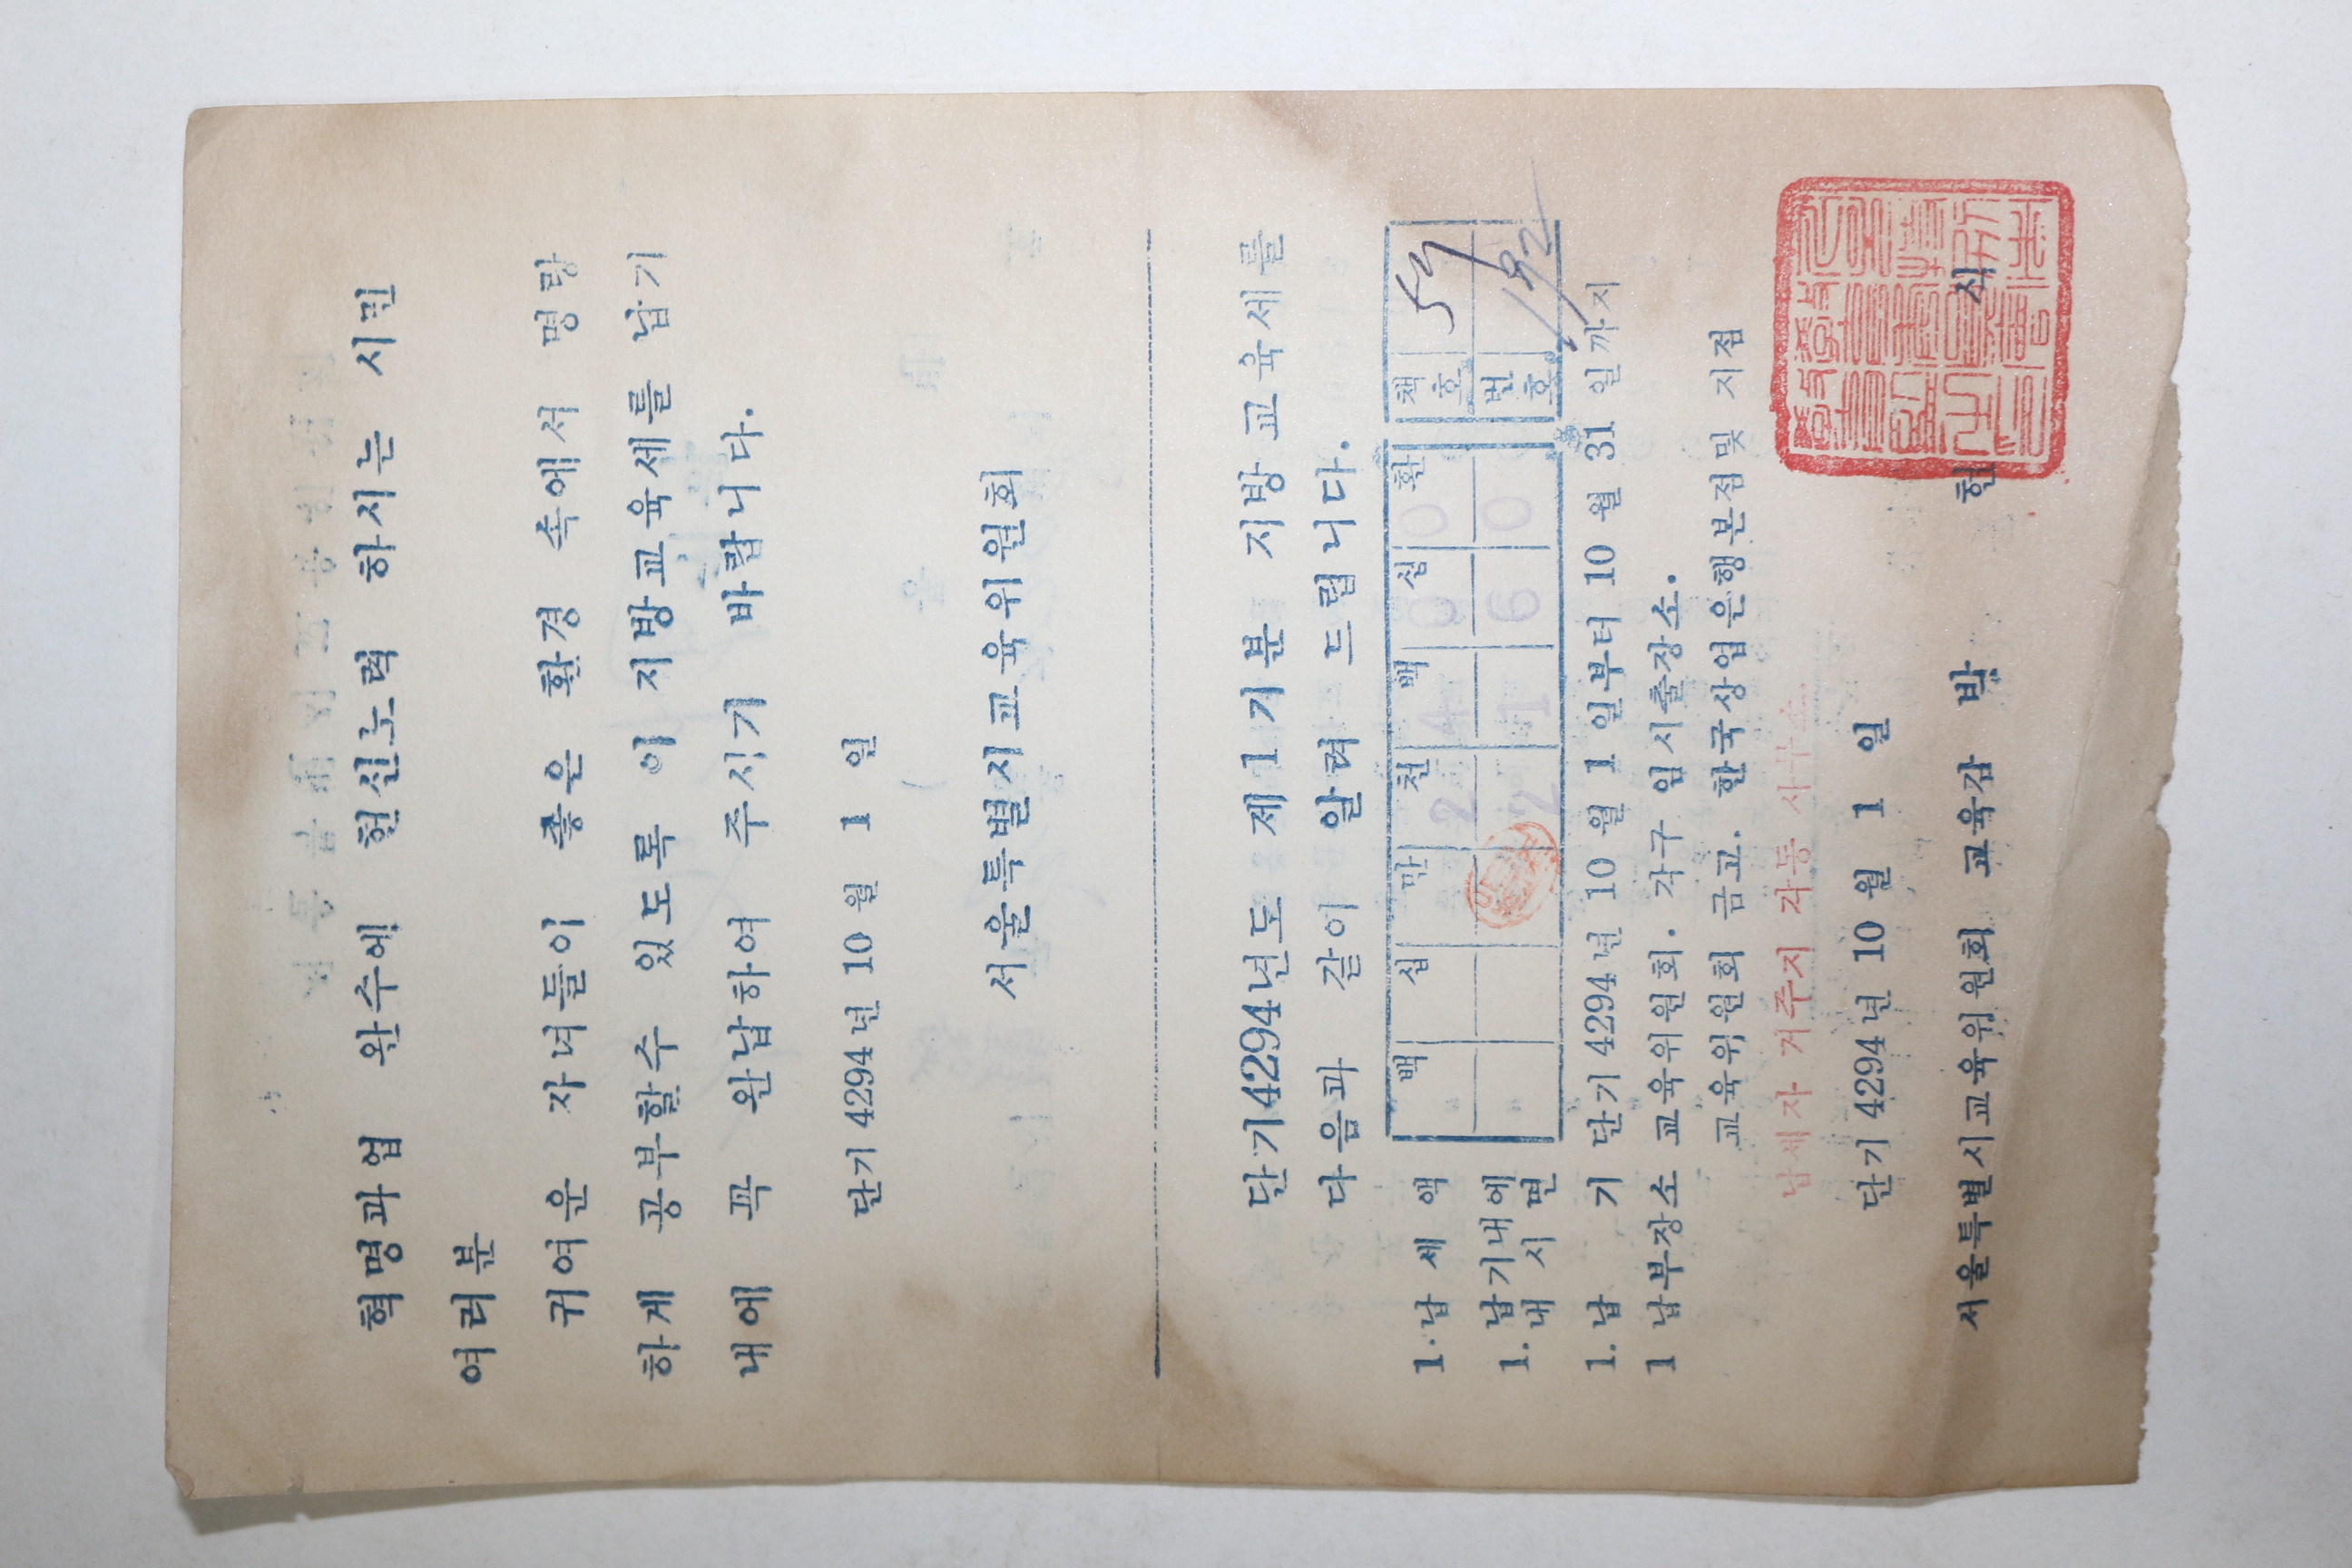 혁명과업 완수에 헌신노력 하시는 시민
여러분
귀여운 자녀들이 좋은 환경 속에서 명랑
하게 공부할수 있도록 이 지방교육세를 납기
내에 꼭 완납하여 주시기 바랍니다.
단기 4294년 10월 1 일
서울특별시교육위원회
단기4294년도 제1기분 지방교육세를
다음과 같이 알려 드립니다.
백 십 만 천 백 십 환
책호 59
번호 192
1.납 세 액 2 4 0 0
1. 납기내에 내시면 2 1 6 0
1. 납 기 단기 4294년 10월 1 일부터 10 월 31 일까지
1 납부장소 교육위원회. 각구 임시출장소.
교육위원회 금고. 한국상업은행본점및 지점
납세자 거주지 각동 사무소
단기 4294년 10 월 1 일
서울특별시교육위원회 교육감 박 헌 식